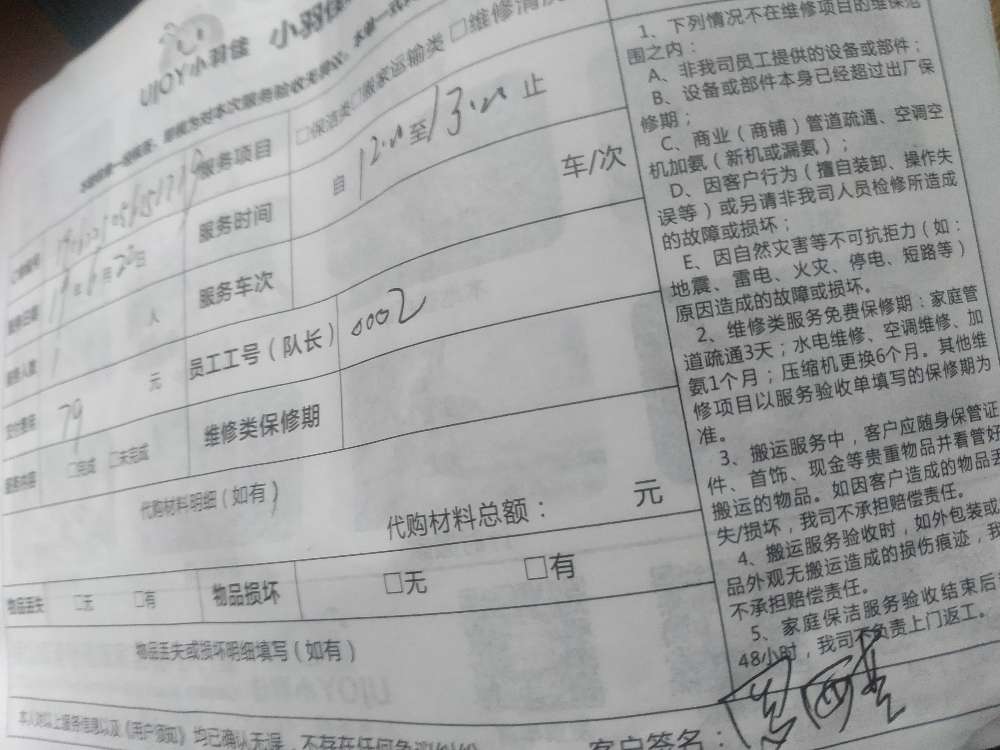 UJOY小羽佳 小羽佳
服务项目 □保洁类□搬家运输类 □维修清洗
服务时间 自 12:00 至 13:00 止
19年6月20日
服务车次 车/次
服务人数 1 人
员工工号（队长） 0002
支付费用 79 元
维修类保修期
服务内容 □完成 □未完成
代购材料明细（如有）
代购材料总额： 元
物品丢失 □无 □有 物品损坏 □无 □有
物品丢失或损坏明细填写（如有）
本人对以上服务信息以及《用户须知》均已确认无误，不存在任何争议纠纷
客户签名：
1、下列情况不在维修项目的维保范
围之内：
A、非我司员工提供的设备或部件；
B、设备或部件本身已经超过出厂保
修期；
C、商业（商铺）管道疏通、空调空
机加氨（新机或漏氨）；
D、因客户行为（擅自装卸、操作失
误等）或另请非我司人员检修所造成
的故障或损坏；
E、因自然灾害等不可抗拒力（如：
地震、雷电、火灾、停电、短路等）
原因造成的故障或损坏。
2、维修类服务免费保修期：家庭管
道疏通3天；水电维修、空调维修、加
氨1个月；压缩机更换6个月。其他维
修项目以服务验收单填写的保修期为
准。
3、搬运服务中，客户应随身保管证
件、首饰、现金等贵重物品并看管好
搬运的物品。如因客户造成的物品丢
失/损坏，我司不承担赔偿责任。
4、搬运服务验收时，如外包装或
品外观无搬运造成的损伤痕迹，我
不承担赔偿责任。
5、家庭保洁服务验收结束后
48小时，我司不负责上门返工。